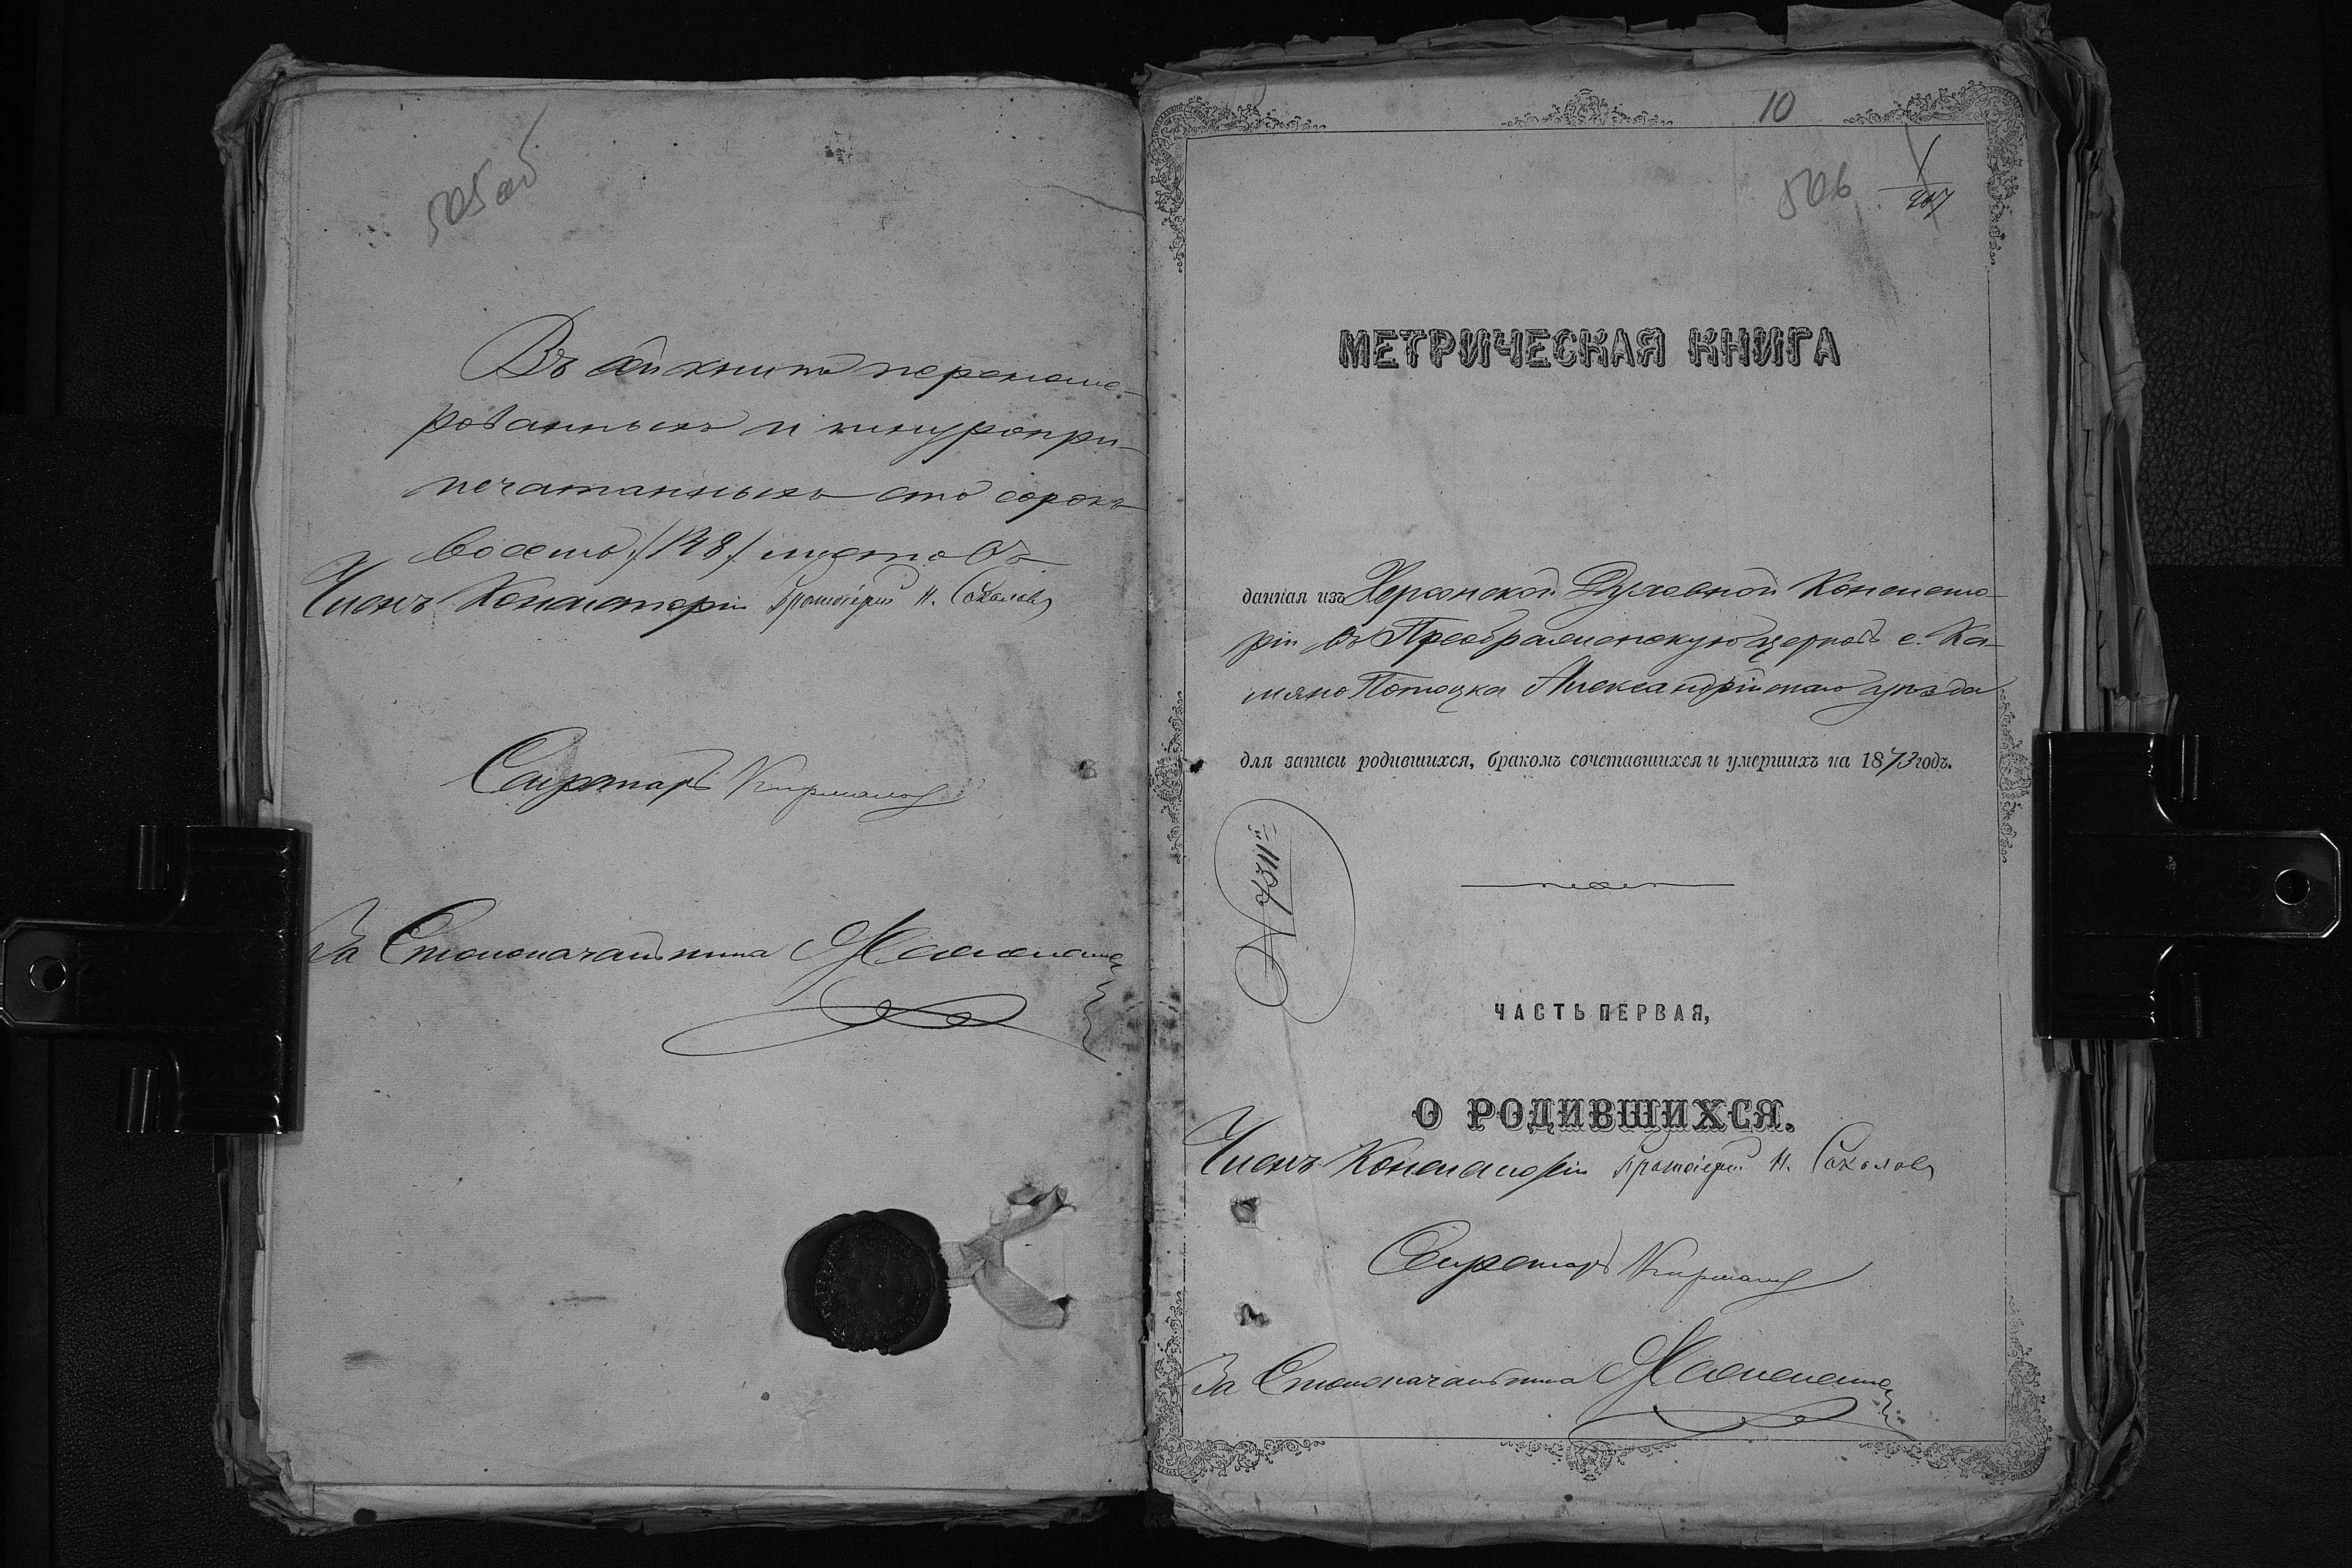 505 об
Въ сей книгѣ перенуме-
рованныхъ и шнуропри-
печатанныхъ сто сорокъ
восемь /148/ листовъ
Членъ Консисторіи Протоіерей Н. Соколовъ
Секретарь
За Столоначальника
10
506
1
МЕТРИЧЕСКАЯ КНИГА
данная изъ Херсонской Духовной Консисто-
ріи въ Преображенскую церковь с. Ка-
мяно Потоцка Александрійскаго уѣзда
для записи родившихся, бракомъ сочетавшихся и умершихъ на 1873 годъ.
ЧАСТЬ ПЕРВАЯ,
О РОДИВШИХСЯ.
Членъ Консисторіи Протоіерей Н. Соколовъ
Секретарь
За Столоначальника